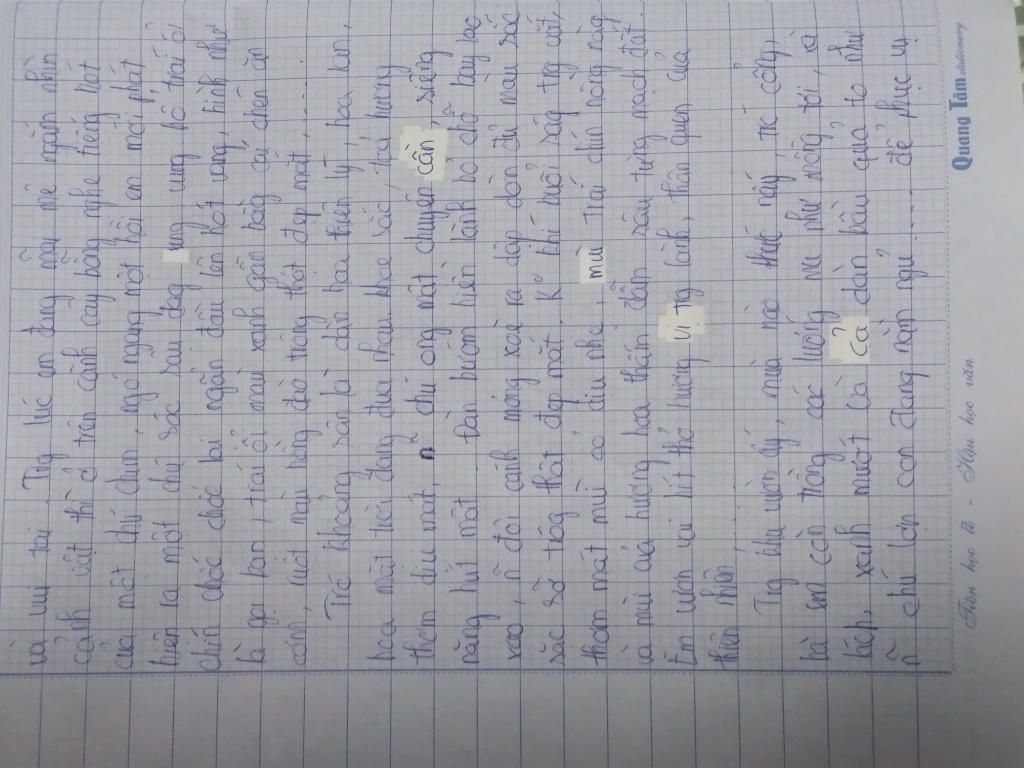 và vui tai. Trg lúc em đang mãi mê ngắm nhìn
cảnh vật thì ở trên cành cây bỗng nghe tiếng hót
của một chú chim, ngó ngang một hồi em mới phát
hiện ra một chú sóc sau đag ung ung bổ trái ổi
chín chốc chốc lại ngẩn đầu lên hót vang, hình như
là gọi bạn, trái ổi màu xanh gần bằng cái chén ăn
cơm, ruột màu hồng đào trông thật đẹp mắt, .......
Trá khoảng sân là dàn hoa thiên lý, hoa lan,
hoa mặt trời đang đua nhau khoe sắc, toả hương
thơm dịu mát, n~ chú ong mật chuyên cần, siêng
năng hút mật ..... Đàn bướm hiền lành bỏ đỗ bay lao
xao, n~ đôi cánh mỏng xoè ra đập dờn đủ màu sắc
sặc sỡ trôg thật đẹp mắt. K° khí buổi ság trg vắt,
thơm mát mùi cỏ dịu nhẹ, mùi trái chín nồng nàng
và mùi của hương hoa thấm đẫm sâu từng mạch đất.
Em vươn vai hít thở hương vị trg lành, thân quen của
thiên nhiên, ...........
Trg khu vườn ấy, mùa nào thức nấy, trừ cổng,
bà em còn trồng các luống rau như mồng tơi, rà
lách, xanh mướt. Cà Cả dàn bầu quả to như
n~ chú lợn con đang nằm ngủ ..... để phục vụ
Quang Tâm stationery
Tiên học lễ - Hậu học văn